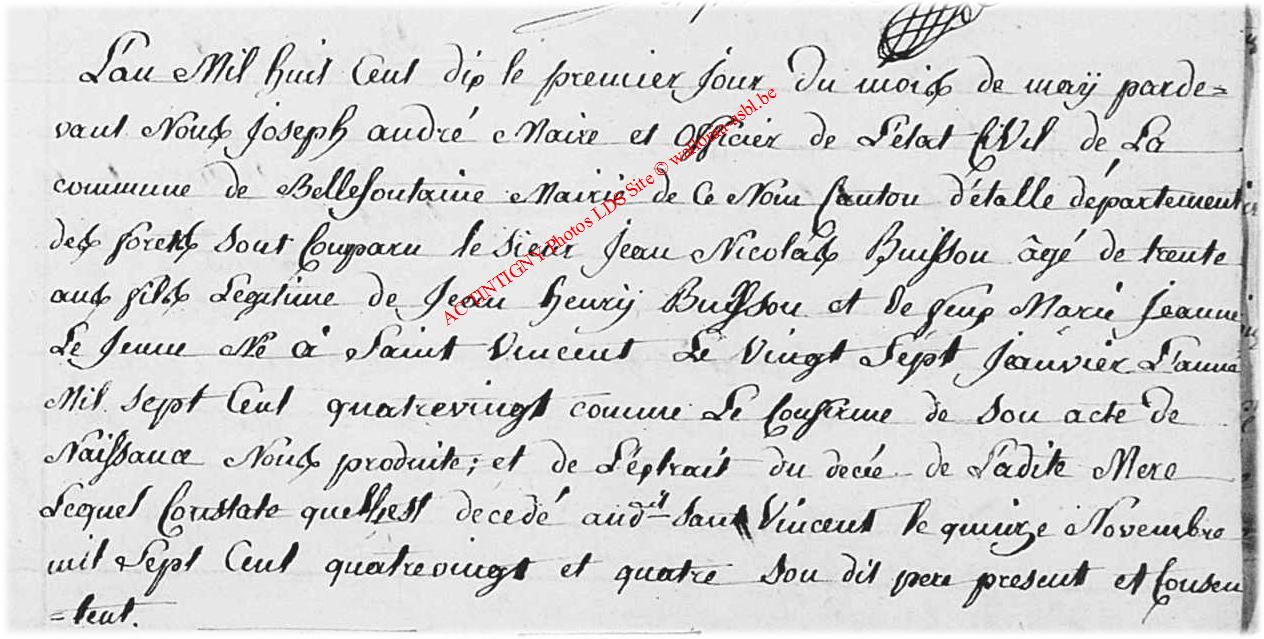 L'an Mil huit Cent dix le premier jour du mois de maÿ parde=
vant Nous joseph andré Maire et Officier de L'état CiVil de La
commune de Bellefontaine Mairie de Ce Nom Canton d'étalle département
des forets sont Comparu le sieur Jean Nicolas Buisson âgé de trente
ans fils Legitime de Jean henrÿ Buisson et de feue Marie Jeanne
Le Jeune Né à Saint Vincent Le Vingt Sept Jeanvier L'anné
Mil sept Cent quatrevingt comme Le Confirme de son acte de
Naissance Nous produite; et de L'extrait du decée de Ladite Mere
Lequel Constate quellest decedé aud.it Saint Vincent le quinze Novembre
mil Sept Cent quatrevingt et quatre son dit pere present et Consen
=tent.
ACTINTIGNY Photos LDS Site © wallonia-asbl.be